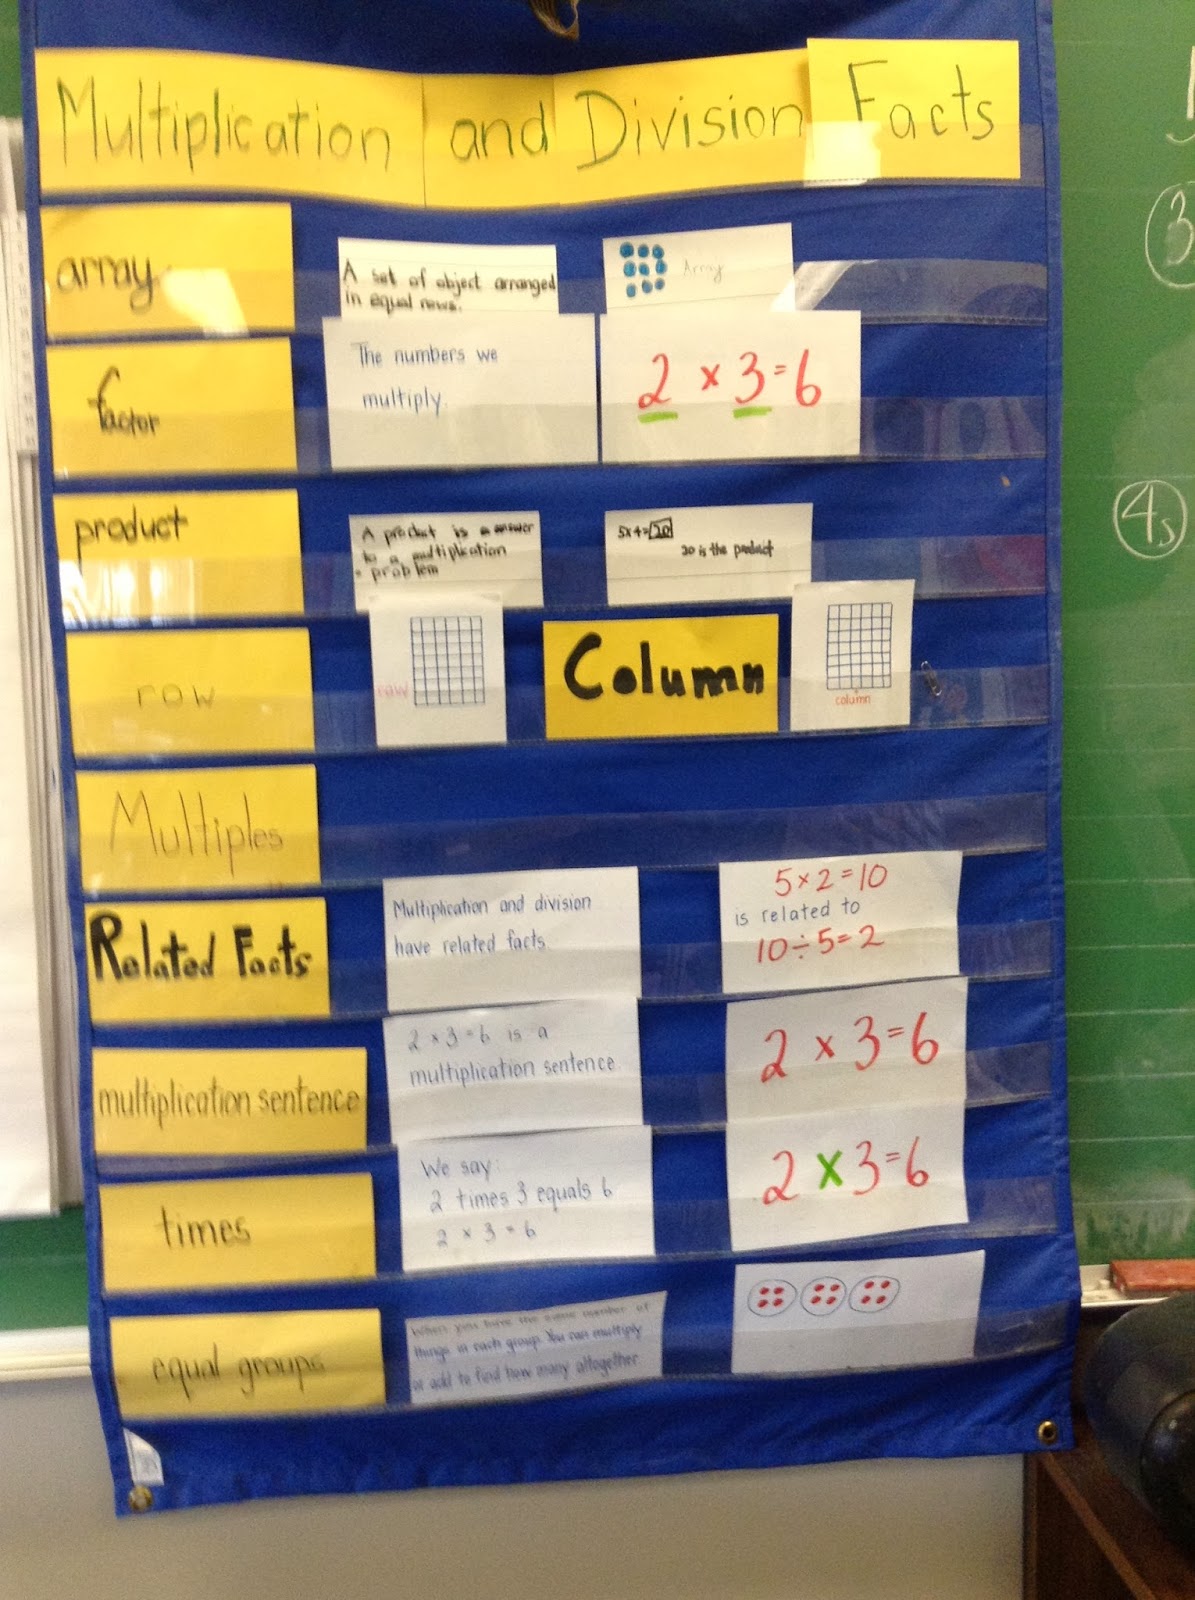 Multiplication and Division Facts
array
A set of object arranged
in equal rows.
Array
factor
The numbers we
multiply.
2 x 3 = 6
product
A product is a answer
to a multiplication
problem
5x4=20
20 is the product
row
row
Column
column
Multiples
Related Facts
Multiplication and division
have related facts.
5 x 2 = 10
is related to
10 ÷ 5 = 2
multiplication sentence
2 x 3 = 6 is a
multiplication sentence.
2 x 3 = 6
times
We say:
2 times 3 equals 6
2 x 3 = 6
2 x 3 = 6
equal groups
When you have the same number of
things in each group. You can multiply
or add to find how many altogether
3
4s